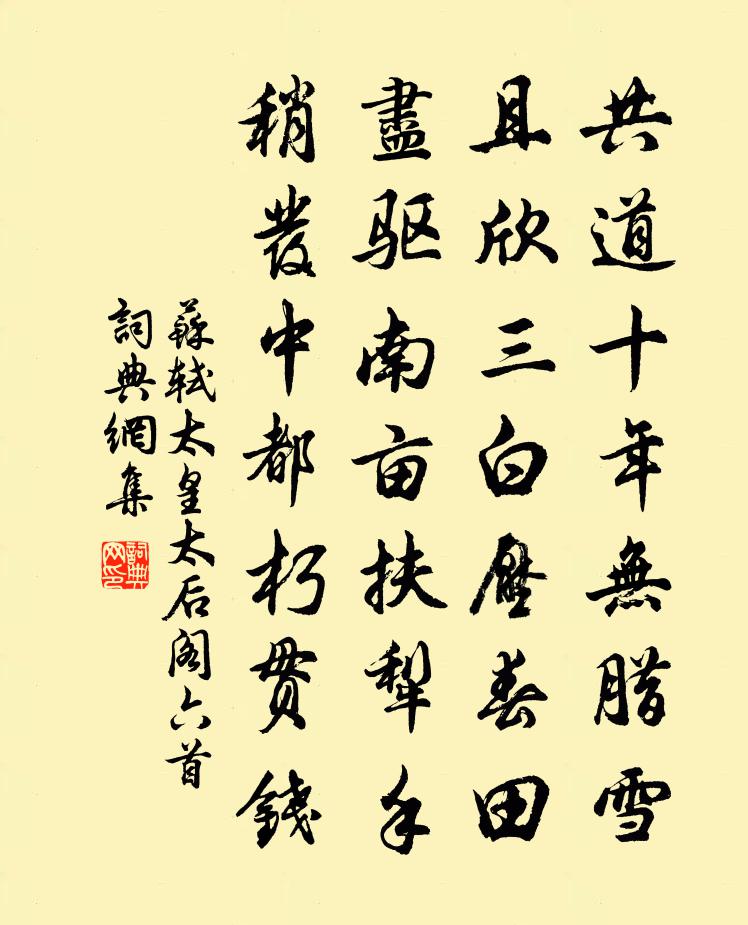 共道十年無腊雪
且欣三白壓春田
盡驱南亩扶犁手
稍發中都朽贯錢
蘇轼太皇太后阁六首
詞典網集
詞典网印